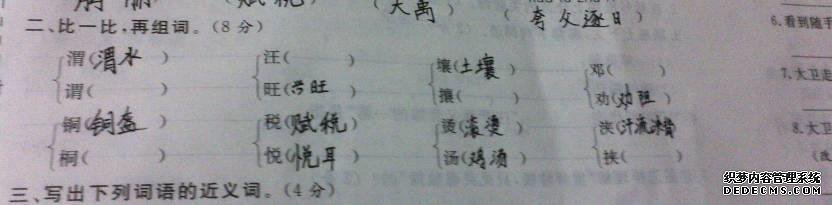 (大禹) (夸父逐日)
二、比一比,再组词。(8分)
渭(渭水) 汪( ) 壤(土壤) 邓( )
谓( ) 旺(兴旺) 攘( ) 劝(劝阻)
铜(铜盔) 税(赋税) 烫(滚烫) 浃(汗流浃背)
桐( ) 悦(悦耳) 汤(鸡汤) 挟( )
三、写出下列词语的近义词。(4分)
6.看到随手
7.大卫走
8.大卫
织梦内容管理系统
DEDECMS.COM